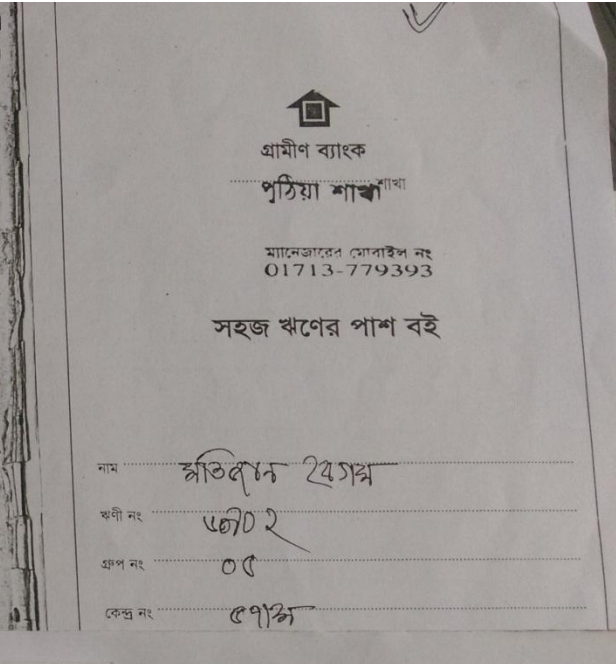 গ্রামীণ ব্যাংক
পুঠিয়া শাখা শাখা
ম্যানেজারের মোবাইল নং
01713-779393
সহজ ঋণের পাশ বই
নাম
ঋণী নং
গ্রুপ নং ০৫
কেন্দ্র নং